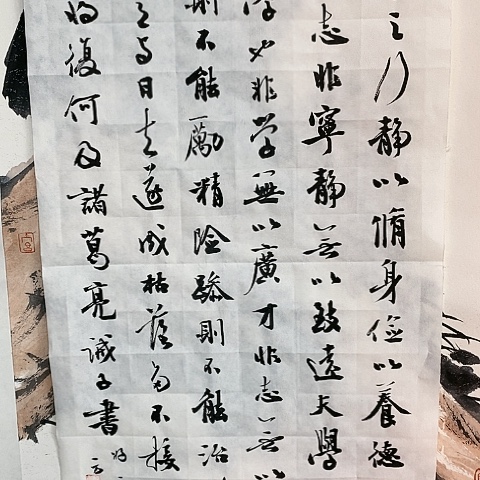 之行静以脩身儉以養德
志非寧静无以致遠夫學
学也非学無以廣才非志无以
則不能勵精險躁則不能治
与日去遂成枯落多不接
將復何及諸葛亮誡子書